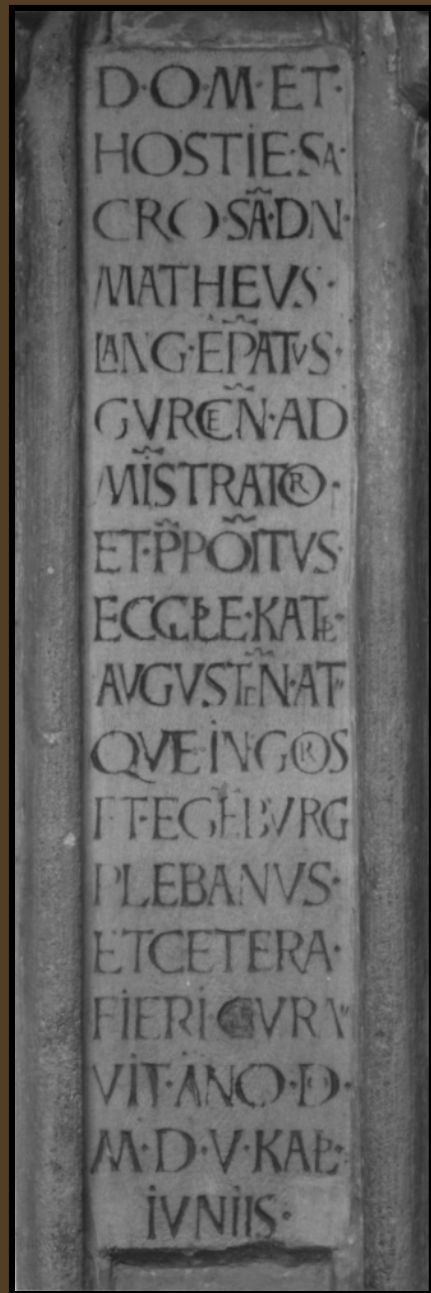 D·O·M·ET·
HOSTIE·SA·
CRO·SÃ·DN·
MATHEVS·
LANG·EP̃ATVS·
GVRCEÑ·AD
MĨSTRATOR·
ET·P̃PÕITVS·
ECCLE·KATL·
AVGVSTEÑ·AT
QVE·IN·GROS
ET·EGEBVRG
PLEBANVS·
ETCETERA·
FIERI CVRA
VIT·ANO·D·
M·D·V·KAL·
IVNIIS·